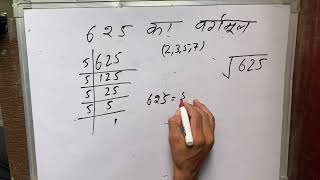 625 का वर्गमूल
(2,3,5,7)
√625
5 | 625
5 | 125
5 | 25
5 | 5
1
625 = 5